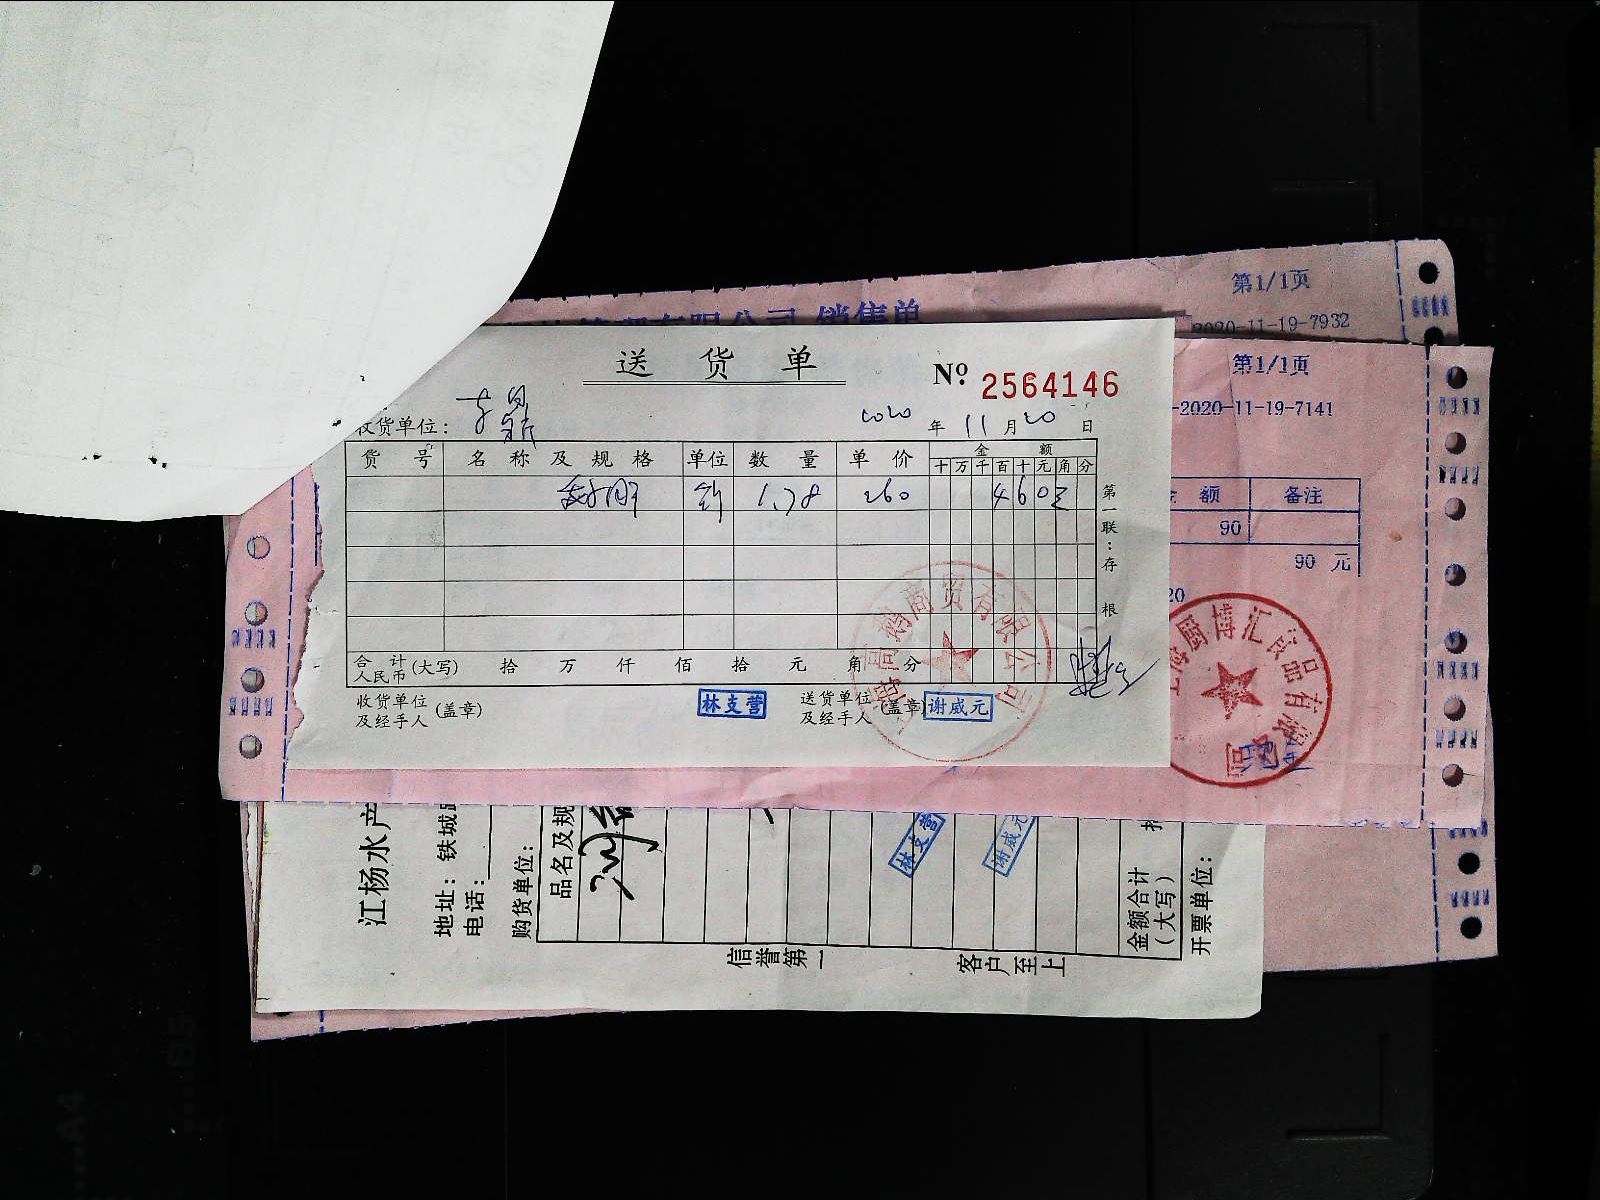 第1/1页
销售单
2020-11-19-7932
第1/1页
-2020-11-19-7141
送货单
Nº 2564146
收货单位：
2020 年 11 月 20 日
货号 名称及规格 单位 数量 单价 金额
十 万 千 百 十 元 角 分
斤 1.78 260 4603
第一联：存根
合计人民币(大写) 拾 万 仟 佰 拾 元 角 分
收货单位及经手人(盖章) 林支营 送货单位及经手人(盖章) 谢威元
商贸有限公司
额 备注
90
90 元
20
厨博汇食品有限公司
江杨水产
地址：铁城路
电话：
购货单位：
品名及规
林支营
谢威元
金额合计(大写)
开票单位：
信誉第一
客户至上